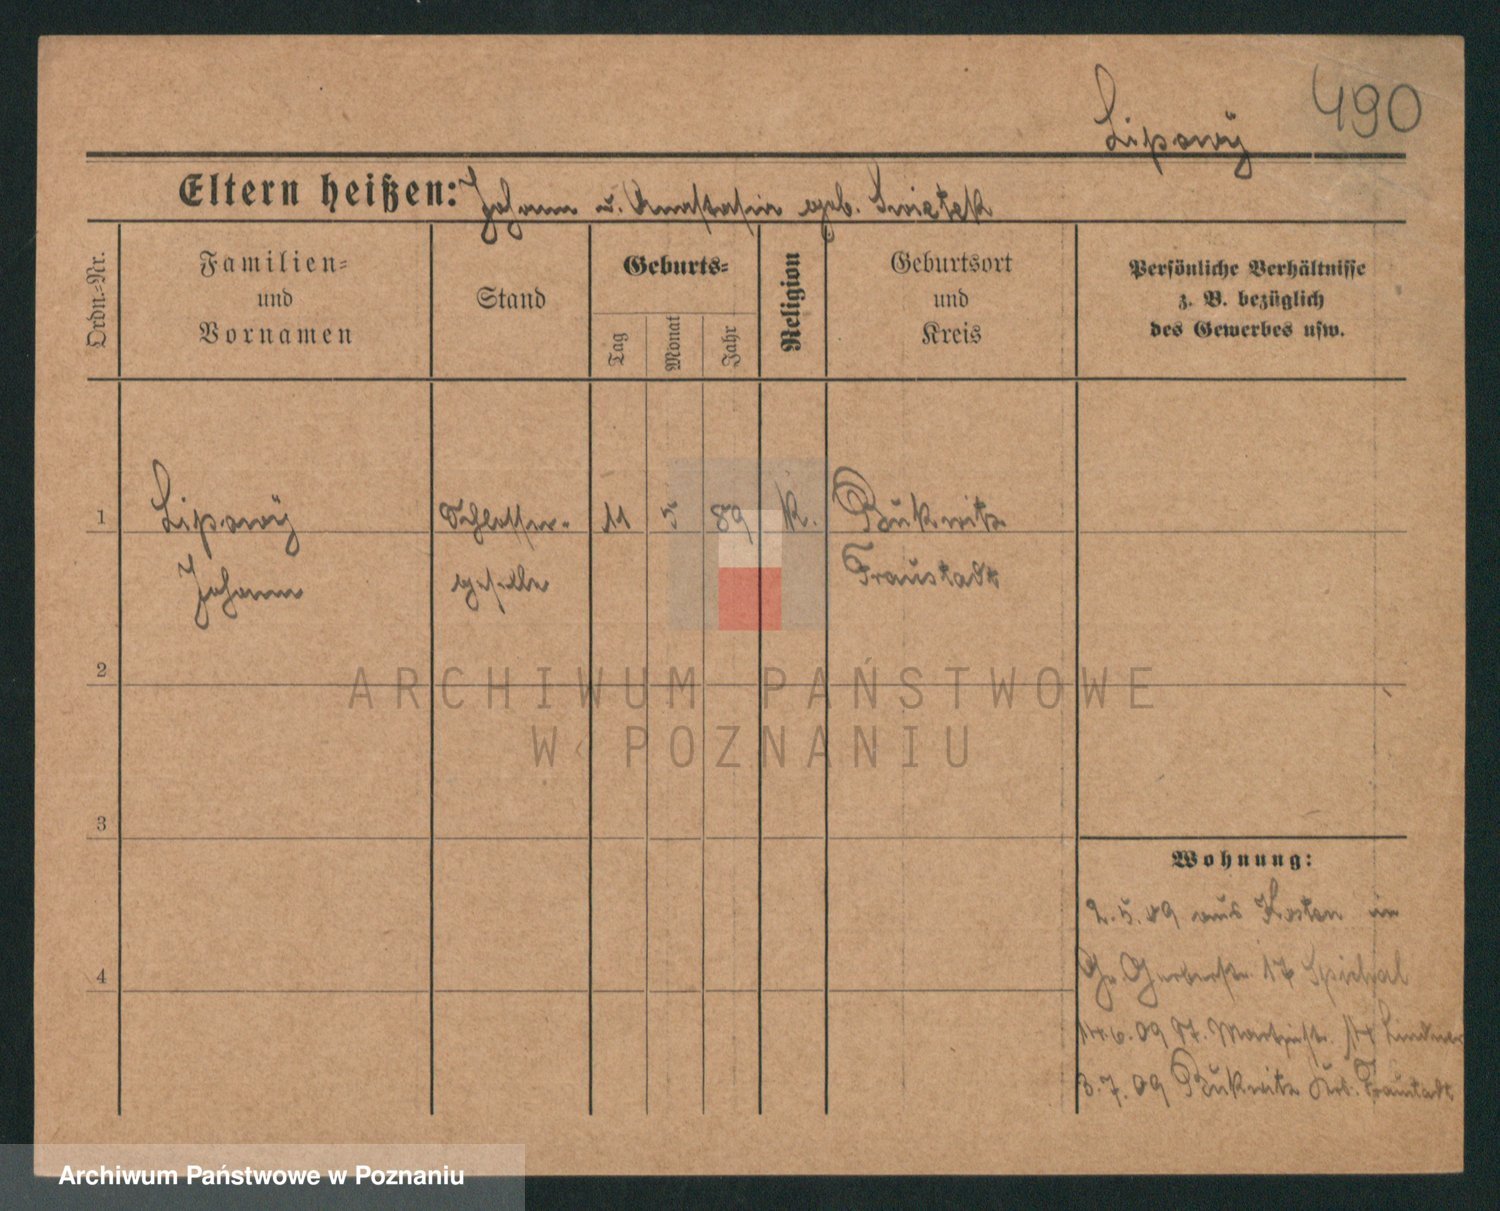 490
Lipowÿ
Eltern heißen: Johann u. Anastasia geb. Swietek
Ordn.-Nr.
Familien-
und
Vornamen
Stand
Geburts-
Tag
Monat
Jahr
Religion
Geburtsort
und
Kreis
Persönliche Verhältnisse
z. B. bezüglich
des Gewerbes usw.
1 Lipowÿ Schlosser- 11 5 89 K. Bukwitz
Johann geselle Fraustadt
2
3
4
Wohnung:
2.5.09 aus Kosten in
Gr. Gerberstr. 17 Spichal
14.6.09 St. Martinstr. Lindner
3.7.09 Bukwitz Krb. Fraustadt
ARCHIWUM PAŃSTWOWE
W POZNANIU
Archiwum Państwowe w Poznaniu